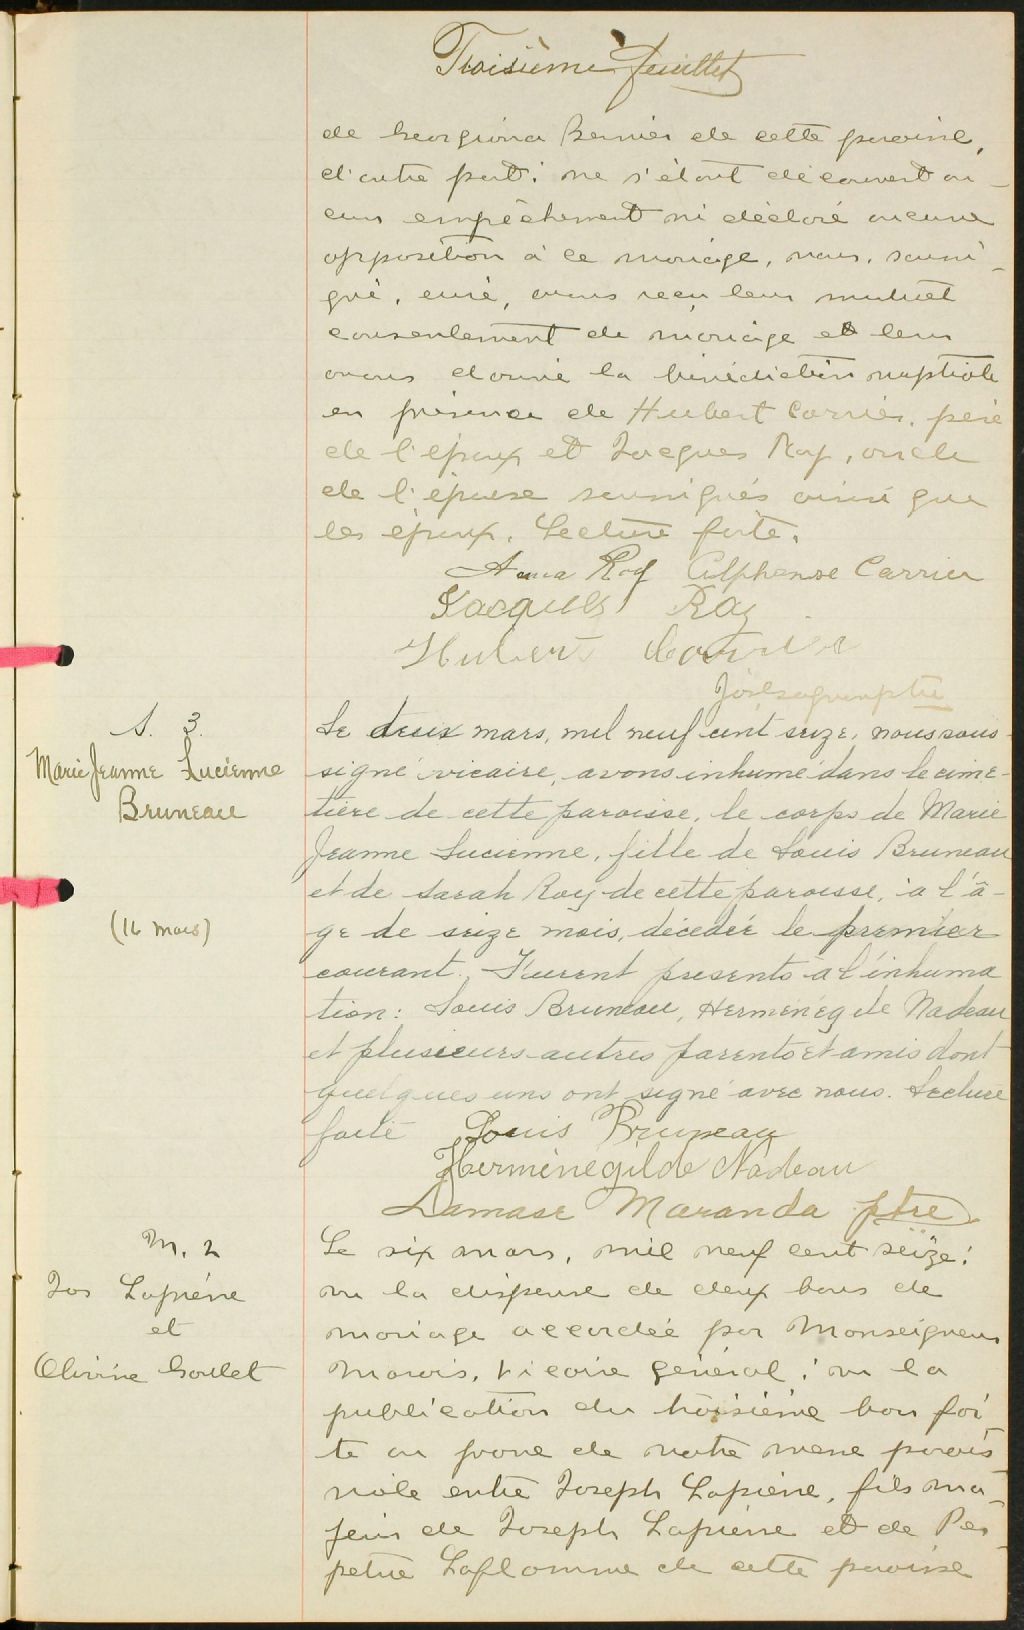 Troisième feuillet
de Georgiana Bernier de cette paroisse,
d'autre part; ne s'étant découvert au-
cun empêchement ni déclaré aucune
opposition à ce mariage, nous, soussi-
gné, curé, avons reçu leur mutuel
consentement de mariage et leur
avons donné la bénédiction nuptiale
en présence de Hubert Carrier, père
de l'époux et Jacques Roy, oncle
de l'épouse soussignés ainsi que
les époux. Lecture faite.
Anna Roy Alphonse Carrier
Jacques Roy
Hubert Carrier
ptre
S. 3.
Marie Jeanne Lucienne
Bruneau
(16 mois)
Le deux mars, mil neuf cent seize, nous sous-
signé vicaire, avons inhumé dans le cime-
tière de cette paroisse, le corps de Marie
Jeanne Lucienne, fille de Louis Bruneau
et de Sarah Roy de cette paroisse, à l'â-
ge de seize mois, décédée le premier
courant. Furent présents à l'inhuma
tion: Louis Bruneau, Herménégilde Nadeau
et plusieurs autres parents et amis dont
quelques uns ont signé avec nous. Lecture
faite Louis Bruneau
Herménégilde Nadeau
Damase Maranda ptre
M. 2
Jos Lapierre
et
Olivine Goulet
Le six mars, mil neuf cent seize;
vu la dispense de deux bans de
mariage accordée par Monseigneur
Marois, Vicaire général; vu la
publication du troisième ban fai-
te au prone de notre messe parois-
siale entre Joseph Lapierre, fils ma-
jeur de Joseph Lapierre et de Per-
petue Laflamme de cette paroisse